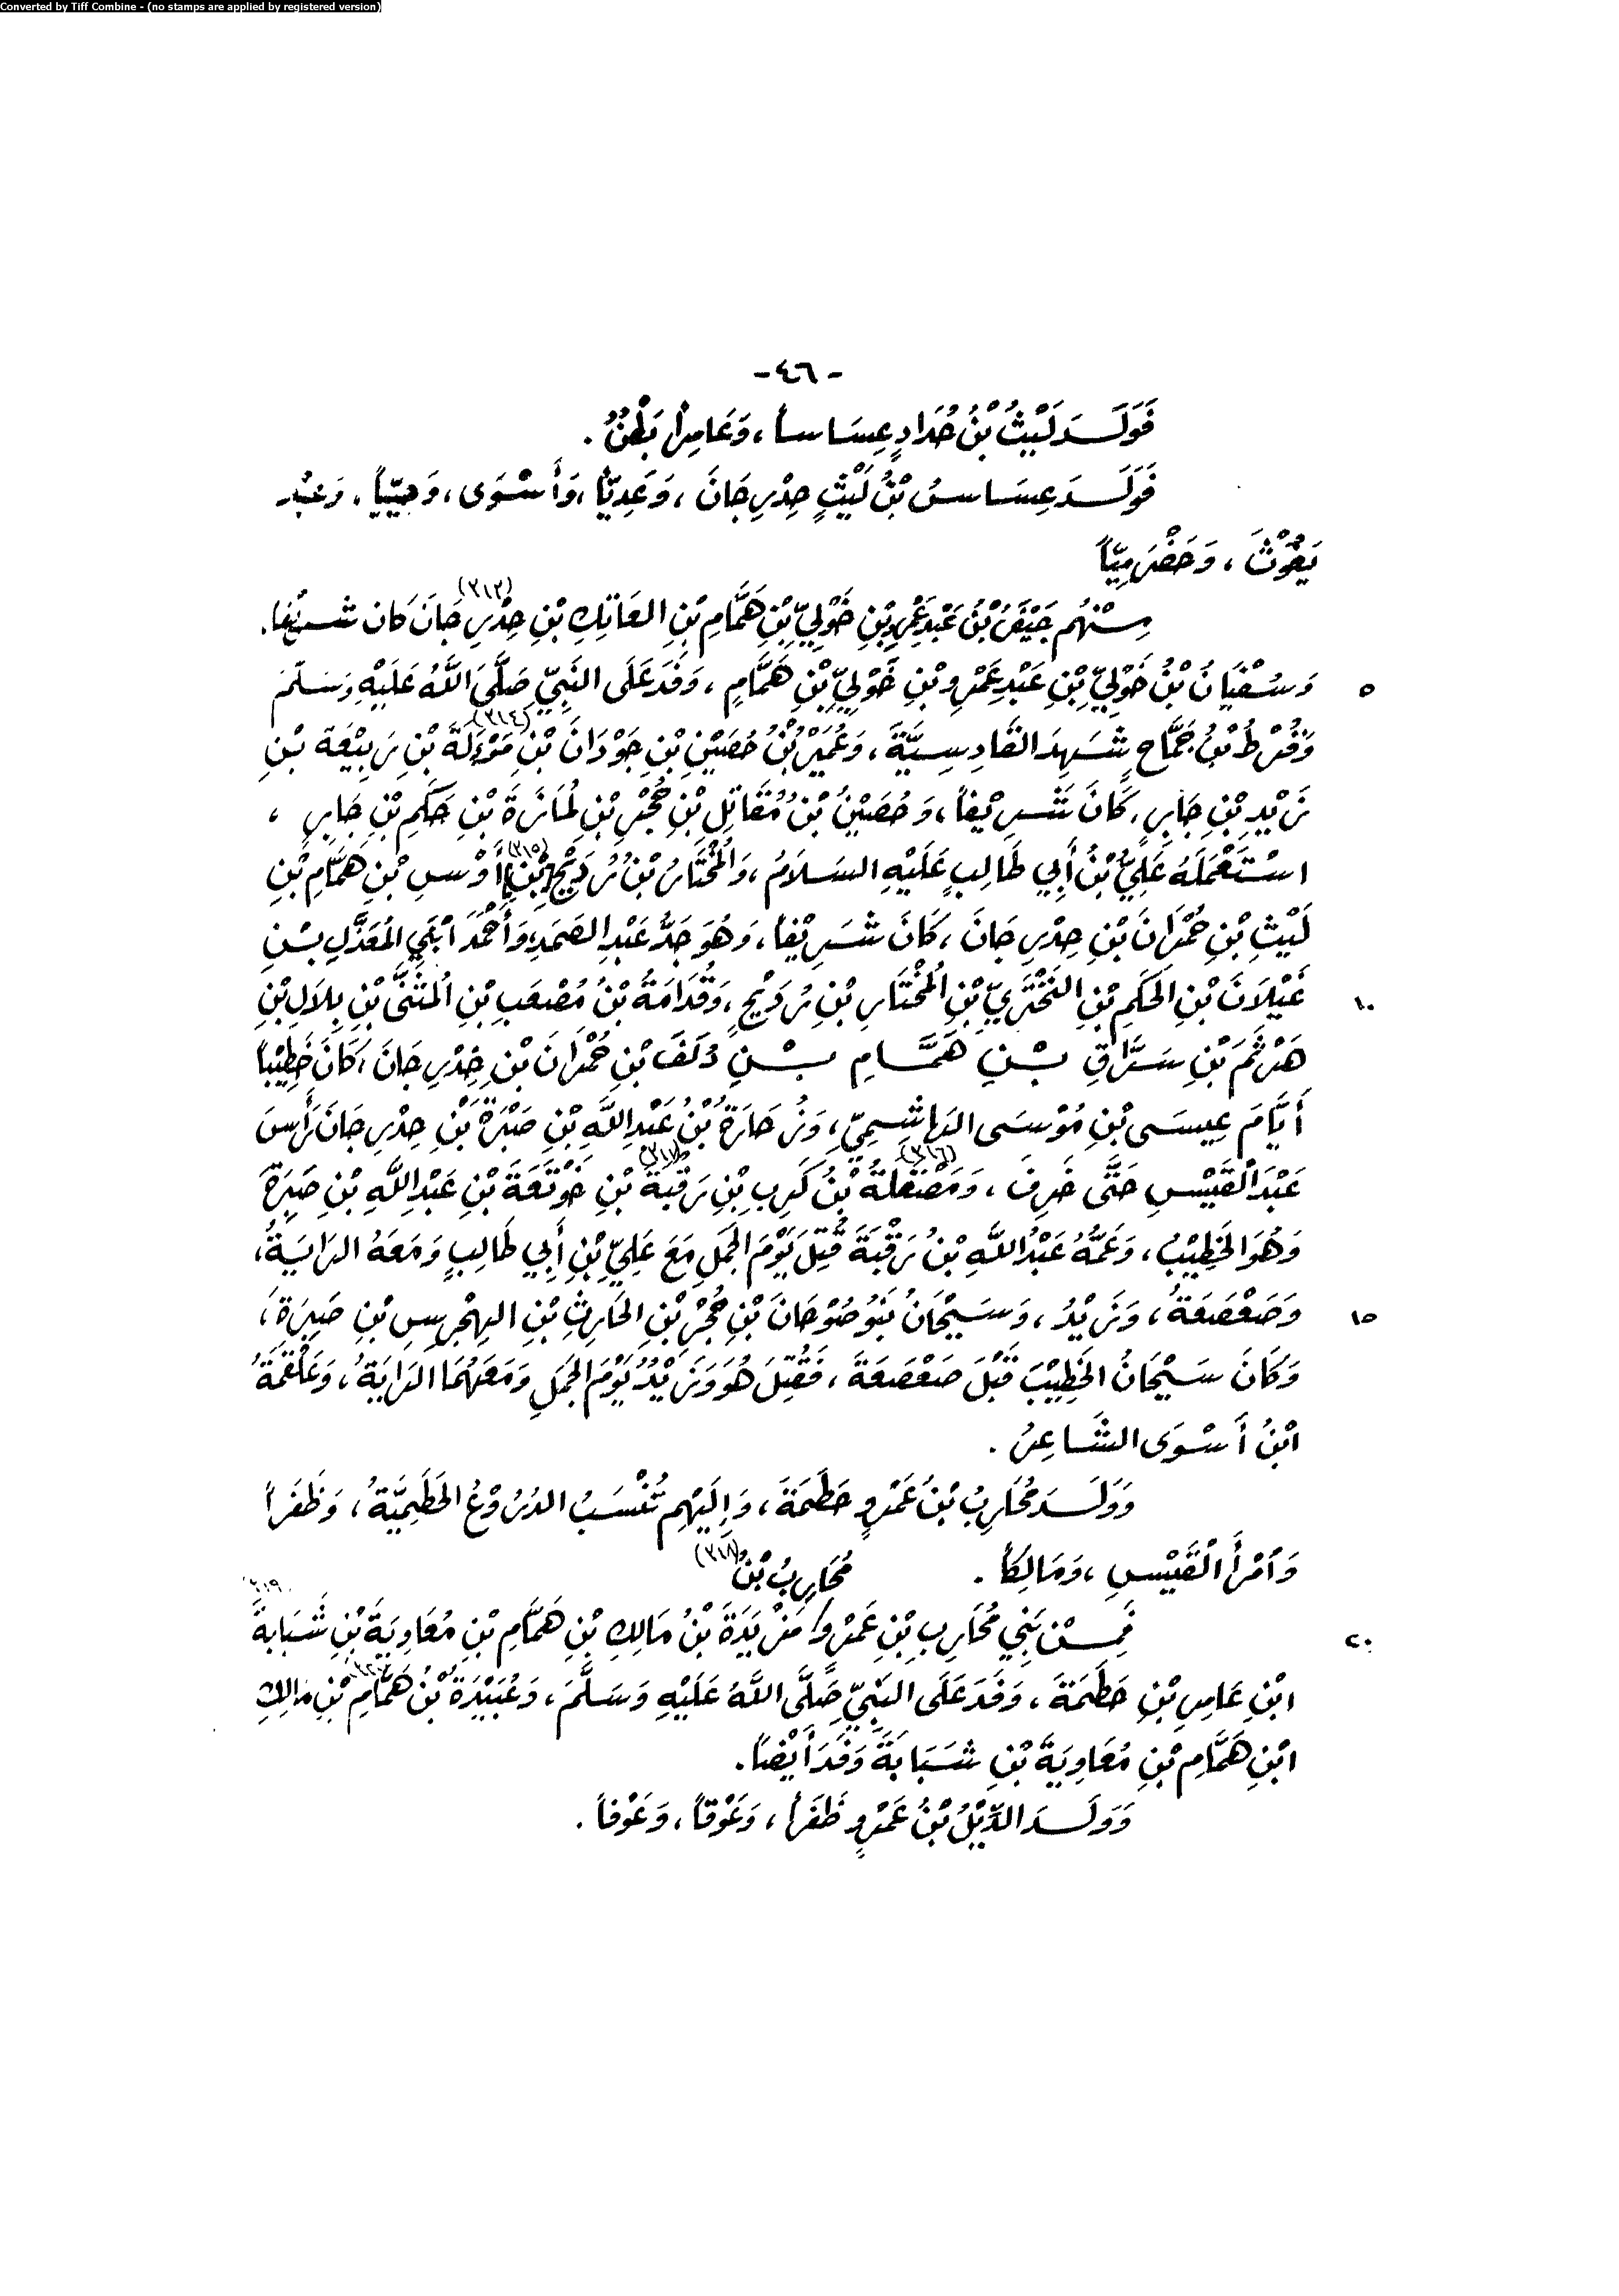 Converted by Tiff Combine - (no stamps are applied by registered version)
-٤٦-
فَوَلَدَ لَيْثُ بْنُ حُدَادٍ عِسَاساً، وَعَامِراً بَطْنٌ.
فَوَلَدَ عِسَاسُ بْنُ لَيْثٍ حِدْرِجَانَ، وَعَدِيّاً، وَأَسْوَى، وَحِيَيّاً، وَعَبْدَ
يَغُوْثَ، وَحَضْرَمِيّاً
مِنْهُم جَيْفَرُ بْنُ عَبْدِ عَمْرِو بْنِ خَوْلِيِّ بْنِ هَمَّامِ بْنِ العَاتِكِ بْنِ حِدْرِجَانَ كَانَ شَرِيْفاً. (٣١٣)
٥ وَسُفْيَانُ بْنُ خَوْلِيِّ بْنِ عَبْدِ عَمْرِو بْنِ خَوْلِيِّ بْنِ هَمَّامٍ، وَفَدَ عَلَى النَّبِيِّ صَلَّى اللَّهُ عَلَيْهِ وَسَلَّمَ
وَقُرْطُ بْنُ جَمَّاحٍ شَهِدَ القَادِسِيَّةَ، وَعُمَيْرُ بْنُ حُصَيْنِ بْنِ جَوْدَانَ بْنِ مَوْءَلَةَ (٣١٤) بْنِ رَبِيْعَةَ بْنِ
زَيْدِ بْنِ جَابِرٍ، كَانَ شَرِيْفاً، وَحُصَيْنُ بْنُ مُقَاتِلِ بْنِ حُجْرِ بْنِ لُمَازَةَ بْنِ حَكَمِ بْنِ جَابِرٍ،
اسْتَعْمَلَهُ عَلِيُّ بْنُ أَبِي طَالِبٍ عَلَيْهِ السَلَامُ، وَالمُخْتَارُ بْنُ رُدَيْحِ [بْنِ] (٣١٥) أَوْسِ بْنِ هَمَّامِ بْنِ
لَيْثِ بْنِ حُمْرَانَ بْنِ حِدْرِجَانَ، كَانَ شَرِيْفاً، وَهُوَ جَدُّ عَبْدِ الصَمَدِ وَأَحْمَدَ ابْنَي المُعَذَّلِ بْنِ
١٠ غَيْلَانَ بْنِ الحَكَمِ بْنِ البَخْتَرِيِّ بْنِ المُخْتَارِ بْنِ رُدَيْحٍ، وَقُدَامَةُ بْنُ مُصْعَبِ بْنِ المُثَنَّى بْنِ بِلَالِ بْنِ
هَرْثَمَ بْنِ سَرَّاقِ بْنِ هَمَّامِ بْنِ دُلَفَ بْنِ حُمْرَانَ بْنِ حِدْرِجَانَ، كَانَ خَطِيْباً
أَيَّامَ عِيسَى بْنِ مُوْسَى الهَاشِمِيِّ، وَزُحَارَةُ بْنُ عَبْدِ اللَّهِ بْنِ صَبْرَةَ بْنِ حِدْرِجَانَ رَأَسَ
عَبْدَ القَيْسِ حَتَّى خَرِفَ، وَمَصْقَلَةُ (٣١٦) بْنُ كَرِبِ بْنِ رَقَبَةَ (٣١٧) بْنِ خَوْتَعَةَ بْنِ عَبْدِ اللَّهِ بْنِ صَبِرَةَ
وَهُوَ الخَطِيْبُ، وَعَمُّهُ عَبْدُ اللَّهِ بْنُ رَقَبَةَ قُتِلَ يَوْمَ الجَمَلِ مَعَ عَلِيِّ بْنِ أَبِي طَالِبٍ وَمَعَهُ الرَايَةُ،
١٥ وَصَعْصَعَةُ، وَزَيْدُ، وَسَيْحَانُ بَنُو صُوْحَانَ بْنِ حُجْرِ بْنِ الحَارِثِ بْنِ الهِجْرِسِ بْنِ صَبِرَةَ،
وَكَانَ سَيْحَانُ الخَطِيْبَ قَبْلَ صَعْصَعَةَ، فَقُتِلَ هُوَ وَزَيْدُ يَوْمَ الجَمَلِ وَمَعَهُمَا الرَايَةُ، وَعَلْقَمَةُ
ابْنُ أَسْوَى الشَّاعِرُ.
وَوَلَدَ مُحَارِبُ بْنُ عَمْرٍو حَطَمَةَ، وَإِلَيْهِم تُنْسَبُ الدُرُوْعُ الحَطَمِيَّةُ، وَظَفَراً
وَامْرَأَ القَيْسِ، وَمَالِكاً. مُحَارِبُ بْنُ (٣١٨)
٢٠ فَمِنْ بَنِي مُحَارِبِ بْنِ عَمْرٍو / مَزِيْدَةُ بْنُ مَالِكِ بْنِ هَمَّامِ بْنِ مُعَاوِيَةَ بْنِ شَبَابَةَ (٣١٩)
ابْنِ عَامِرِ بْنِ حَطَمَةَ، وَفَدَ عَلَى النَبِيِّ صَلَّى اللَّهُ عَلَيْهِ وَسَلَّمَ، وَعُبَيْدَةُ بْنُ هَمَّامِ بْنِ مَالِكِ
ابْنِ هَمَّامِ بْنِ مُعَاوِيَةَ بْنِ شَبَابَةَ وَفَدَ أَيْضاً.
وَوَلَدَ الدِّيْلُ بْنُ عَمْرٍو ظَفَراً، وَعَوْقاً، وَعَوْفاً.